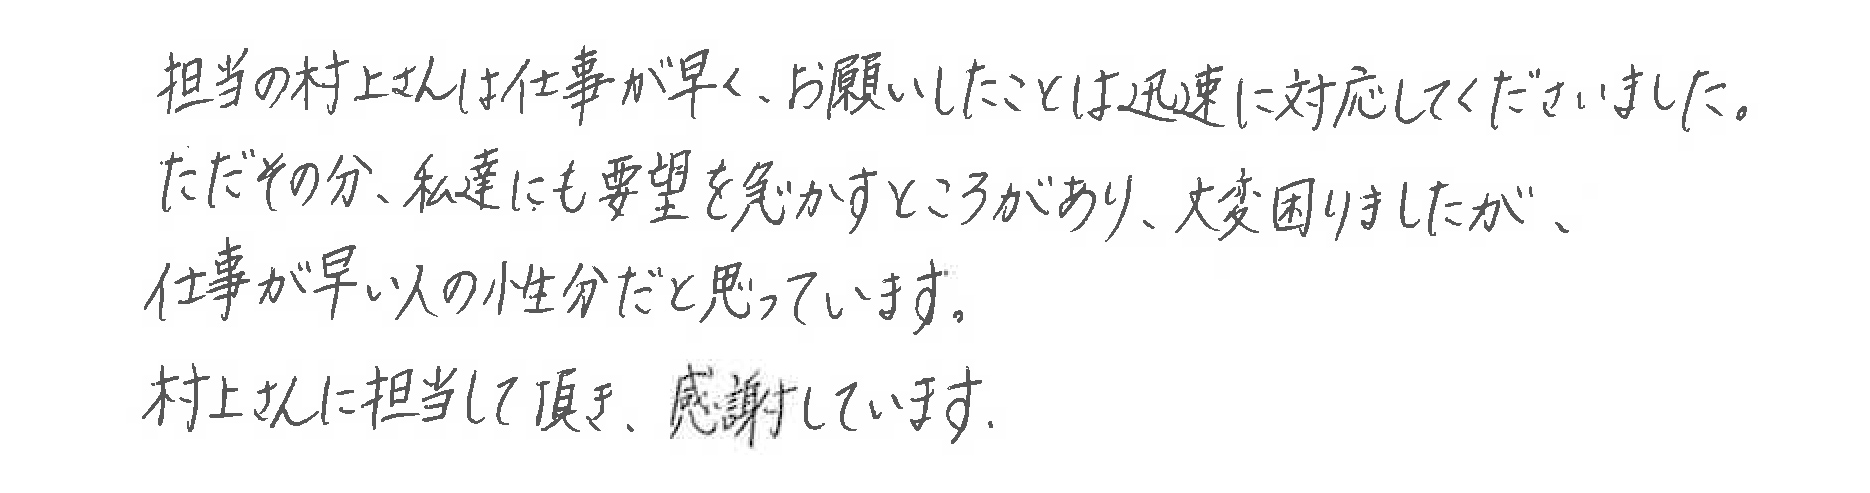 担当の村上さんは仕事が早く、お願いしたことは迅速に対応してくださいました。
ただその分、私達にも要望を急かすところがあり、大変困りましたが、
仕事が早い人の性分だと思っています。
村上さんに担当して頂き、感謝しています.